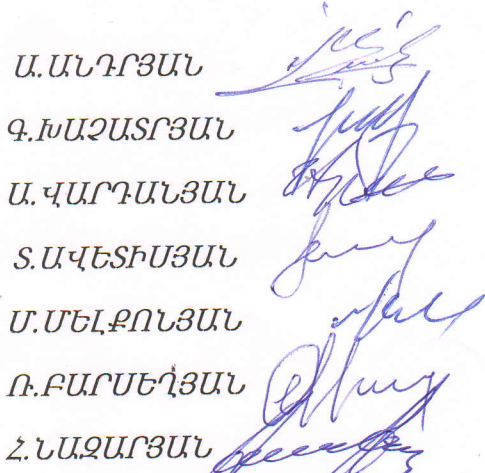 Ա.ԱՆԴՐՅԱՆ
Գ.ԽԱՉԱՏՐՅԱՆ
Ա.ՎԱՐԴԱՆՅԱՆ
Տ.ԱՎԵՏԻՍՅԱՆ
Մ.ՄԵԼՔՈՆՅԱՆ
Ռ.ԲԱՐՍԵՂՅԱՆ
Հ.ՆԱԶԱՐՅԱՆ